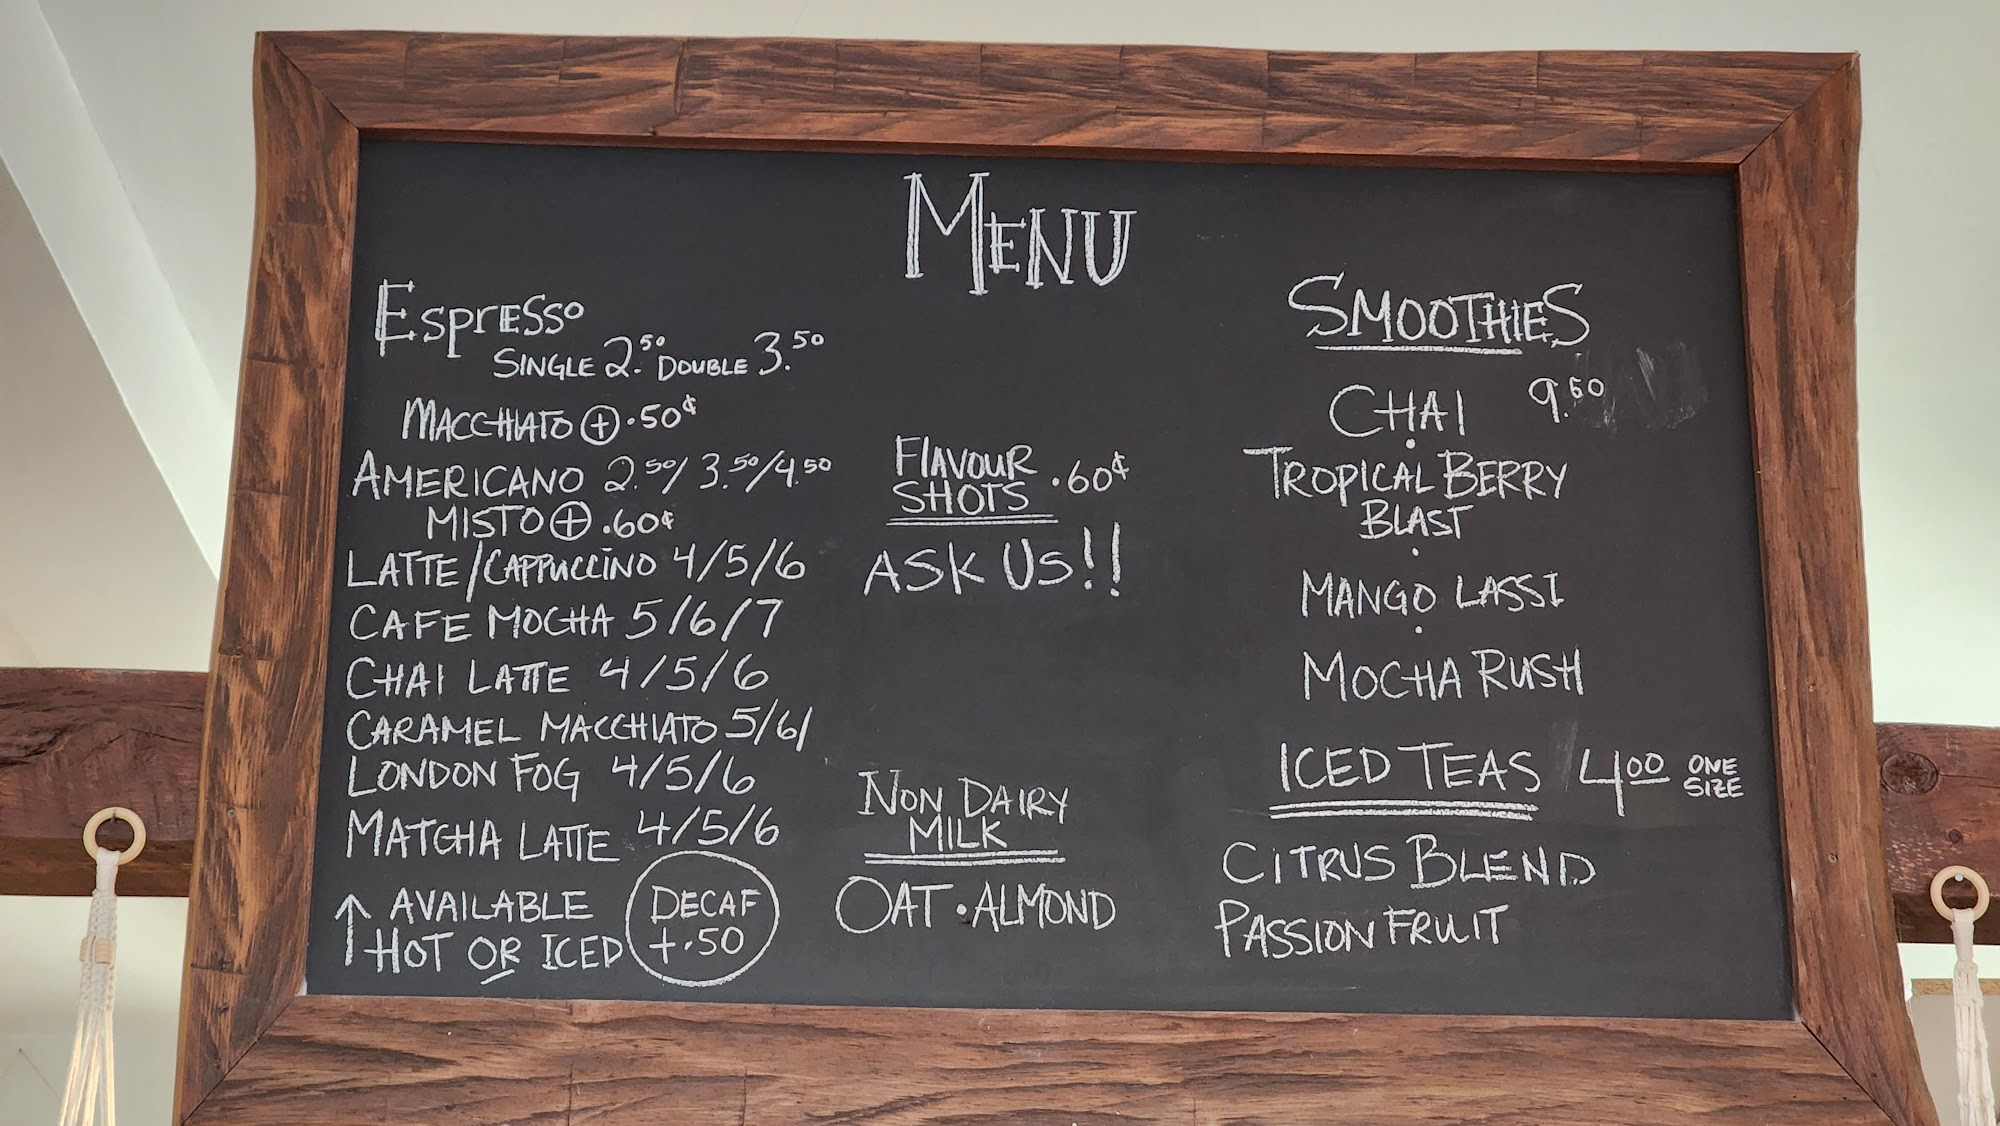 MENU
ESPRESSO
SINGLE 2.50 DOUBLE 3.50
MACCHIATO ⊕ .50¢
AMERICANO 2.50/3.50/4.50
MISTO ⊕ .60¢
LATTE/CAPPUCCINO 4/5/6
CAFE MOCHA 5/6/7
CHAI LATTE 4/5/6
CARAMEL MACCHIATO 5/6/
LONDON FOG 4/5/6
MATCHA LATTE 4/5/6
↑ AVAILABLE
HOT OR ICED
DECAF
+.50
FLAVOUR
SHOTS .60¢
ASK US!!
NON DAIRY
MILK
OAT • ALMOND
SMOOTHIES
CHAI 9.50
•
TROPICAL BERRY
BLAST
•
MANGO LASSI
•
MOCHA RUSH
ICED TEAS 4.00 ONE
SIZE
CITRUS BLEND
PASSION FRUIT